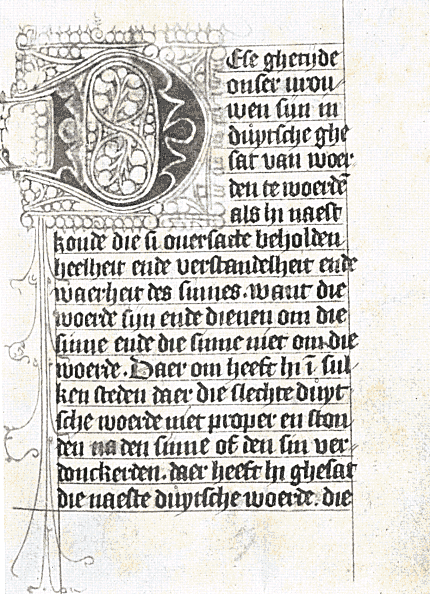 Dese ghetyde
onser vrou
wen sijn in
duytsche ghe
sat van woer
den te woerdē
als hi naest
konde die si ouersatte beholden
heelheit ende verstandelheit ende
waerheit des sinnes. want die
woerde sijn ende dienen om die
sinne ende die sinne niet om die
woerde. Daer om heeft hi ī sul
ken steden daer die slechte duyt
sche woerde niet proper en ston
den na den sinne of den sin ver
donckerden. daer heeft hi ghesat
die naeste duytsche woerde. die